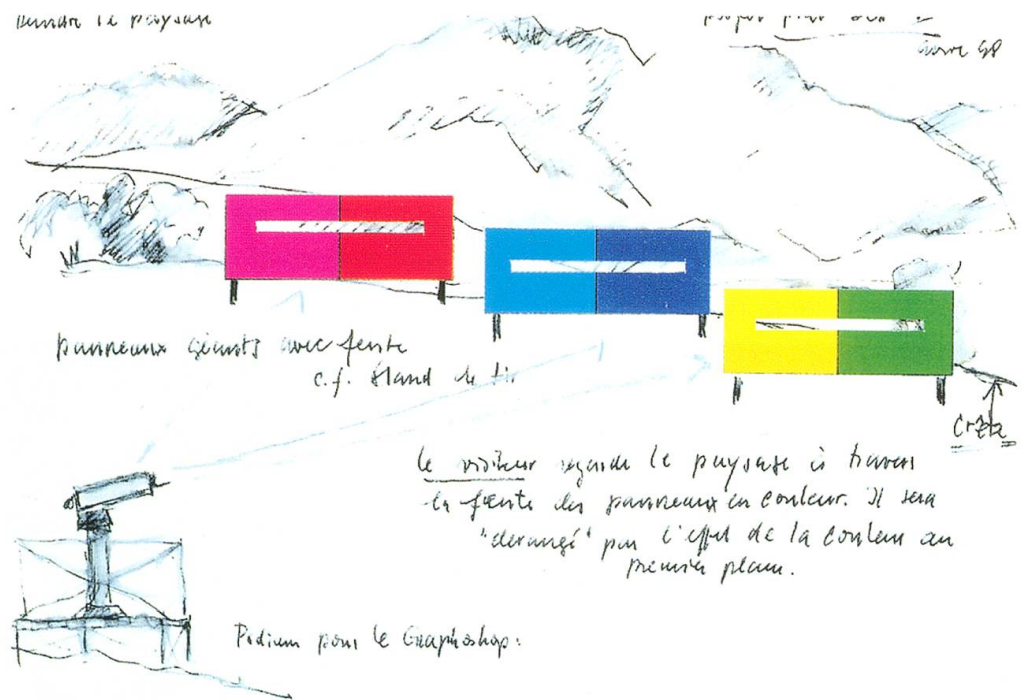 le paysage
panneaux géants avec fente
c.f. Stand de tir
Crêta
le visiteur regarde le paysage à travers
la fente des panneaux en couleur. Il sera
"dérangé" par l'effet de la couleur au
premier plan.
Podium pour le Graphoshop: